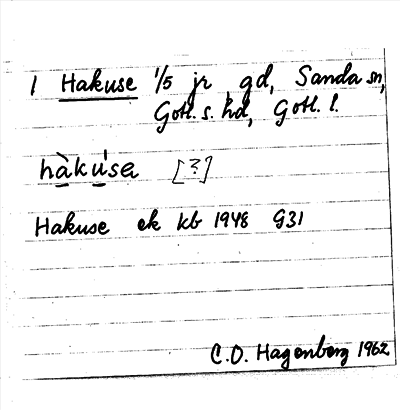 1 Hakuse 1/5 jr, gd, Sanda sn,
Gotl. s. hd, Gotl. l.
hàkúsa [?]
Hakuse ek kb 1948 G31
C.O. Hagenberg 1962